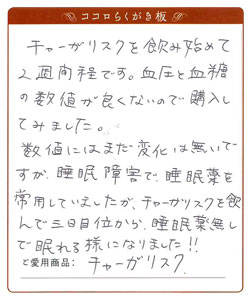 ココロらくがき板
チャーガリスクを飲み始めて
2週間程です。血圧と血糖
の数値が良くないので購入し
てみました。
数値にはまだ変化は無いで
すが、睡眠障害で、睡眠薬を
常用していましたが、チャーガリスクを飲
んで三日目位から、睡眠薬無し
で眠れる様になりました!!
ご愛用商品: チャーガリスク